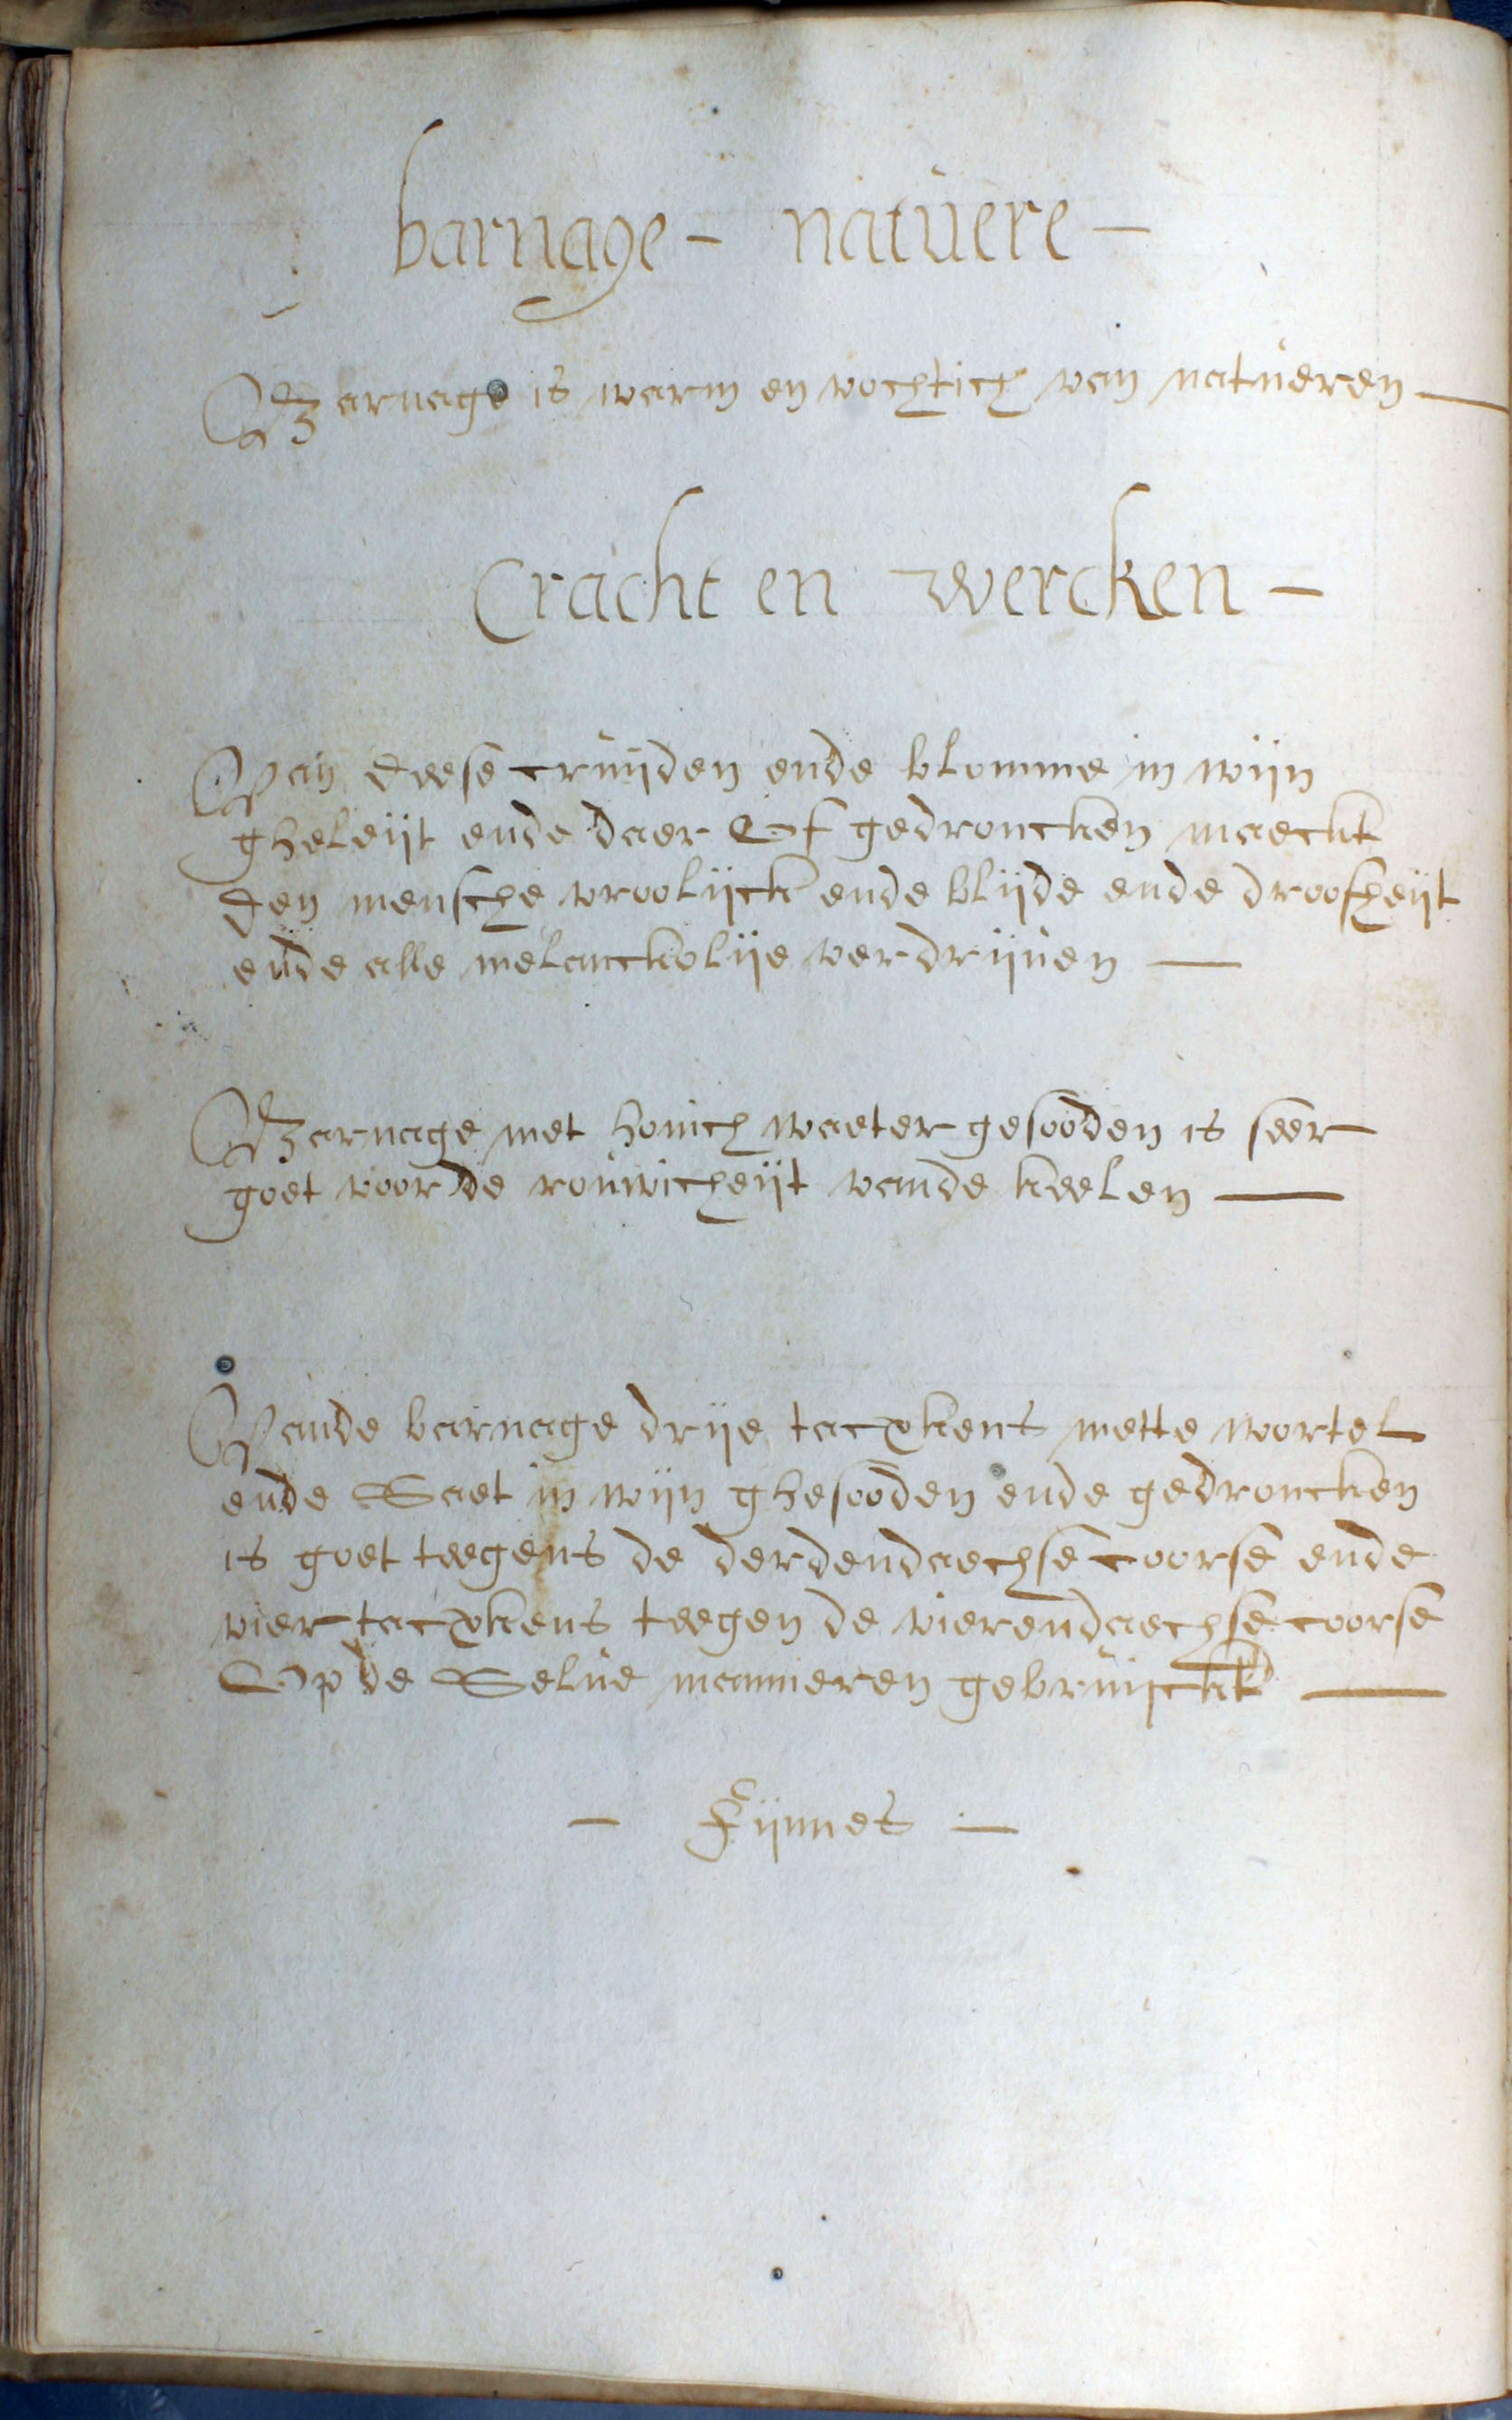 barnage - natuere -
Barnage is warm en vochtich van natueren —
Cracht en wercken -
Van deese cruijden ende blomme in wijn
gheleijt ende daer Of gedroncken maeckt
den mensche vroolijck ende blijde ende droofheijt
ende alle melanckolije verdrijven —
Barnage met honich waeter gesooden is seer
goet voor de rouwicheijt vande keelen —
Vande barnage drije tacxkens mette wortel
ende Saet in wijn ghesooden ende gedroncken
is goet teegens de derdendaechse coorse ende
vier tacxkens teegen de vierendaechse coorse
Op de Selue manieren gebruijckt —
- Fijnnes -